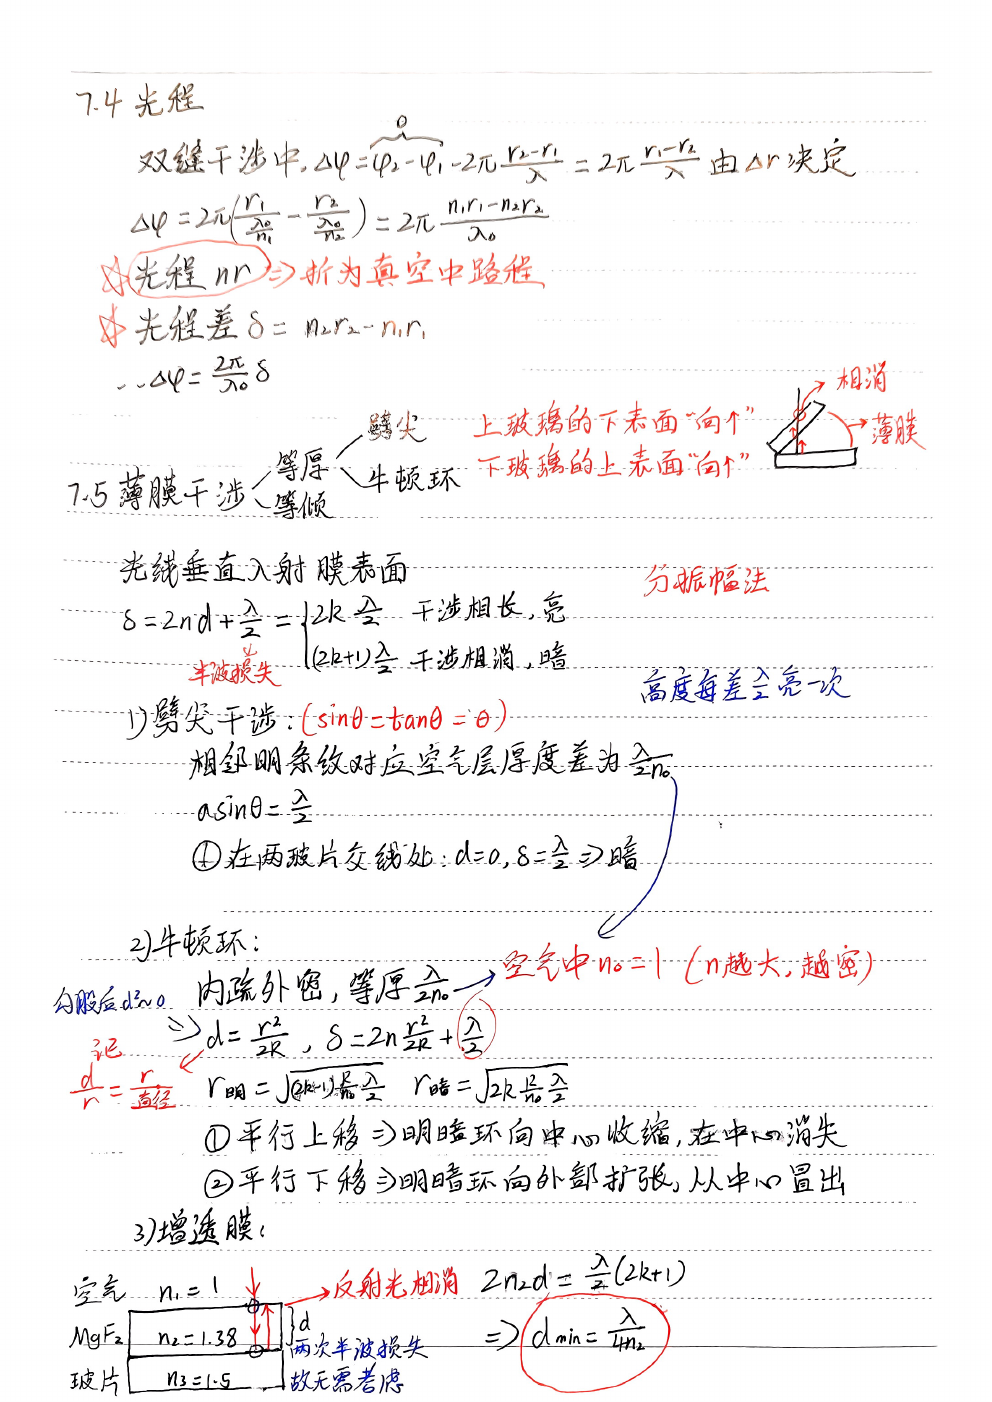 7.4 光程
0
双缝干涉中, Δφ = φ₂-φ₁ - 2π (r₂-r₁)/λ = 2π (r₁-r₂)/λ 由Δr决定
Δφ = 2π( r₁/(λ₀/n₁) - r₂/(λ₀/n₂) ) = 2π (n₁r₁-n₂r₂)/λ₀
☆ 光程 nr ⇒ 折为真空中路程
☆ 光程差 δ = n₂r₂-n₁r₁
∴ Δφ = 2π/λ₀ δ
相消
薄膜
上玻璃的下表面“向↑”
下玻璃的上表面“向↑”
7.5 薄膜干涉
等厚
劈尖
牛顿环
等倾
光线垂直入射膜表面
分振幅法
δ = 2nd + λ/2 = { 2k λ/2 干涉相长, 亮
(2k+1) λ/2 干涉相消, 暗
半波损失
高度每差λ/2亮一次
1) 劈尖干涉: (sinθ = tanθ = θ)
相邻明条纹对应空气层厚度差为 λ/2n₀
a sinθ = λ/2
① 在两玻片交线处: d=0, δ = λ/2 ⇒ 暗
2) 牛顿环:
空气中 n₀ = 1 (n越大, 越密)
内疏外密, 等厚 λ/2n₀
勾股后 d²≈0
⇒ d = r²/2R , δ = 2n r²/2R + λ/2
记 d/r = r/直径
r明 = √((2k-1) R/n₀ λ/2) r暗 = √(2k R/n₀ λ/2)
① 平行上移 ⇒ 明暗环向中心收缩, 在中心消失
② 平行下移 ⇒ 明暗环向外部扩张, 从中心冒出
3) 增透膜:
空气 n₁ = 1
反射光相消
2n₂d = λ/2 (2k+1)
MgF₂ n₂ = 1.38
d
两次半波损失
故无需考虑
⇒ dmin = λ/4n₂
玻片 n₃ = 1.5